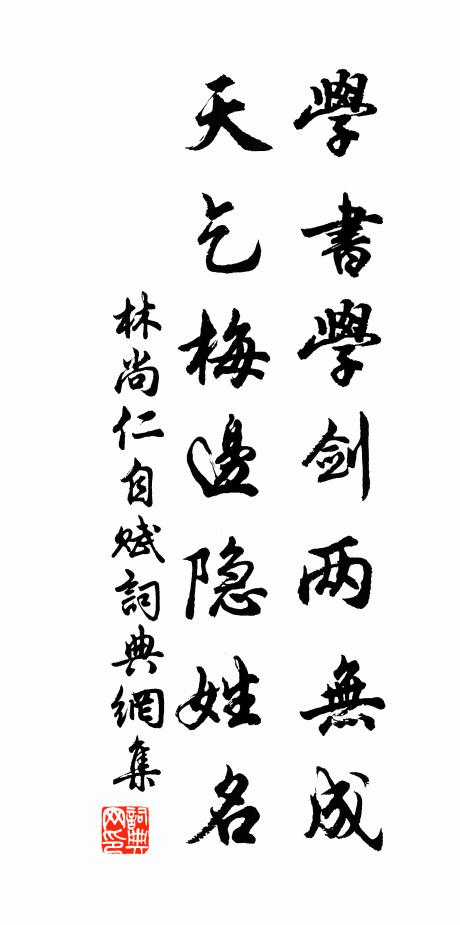 學書學劍两無成
天乞梅邊隐姓名
林尚仁自赋詞典網集
詞典
网印